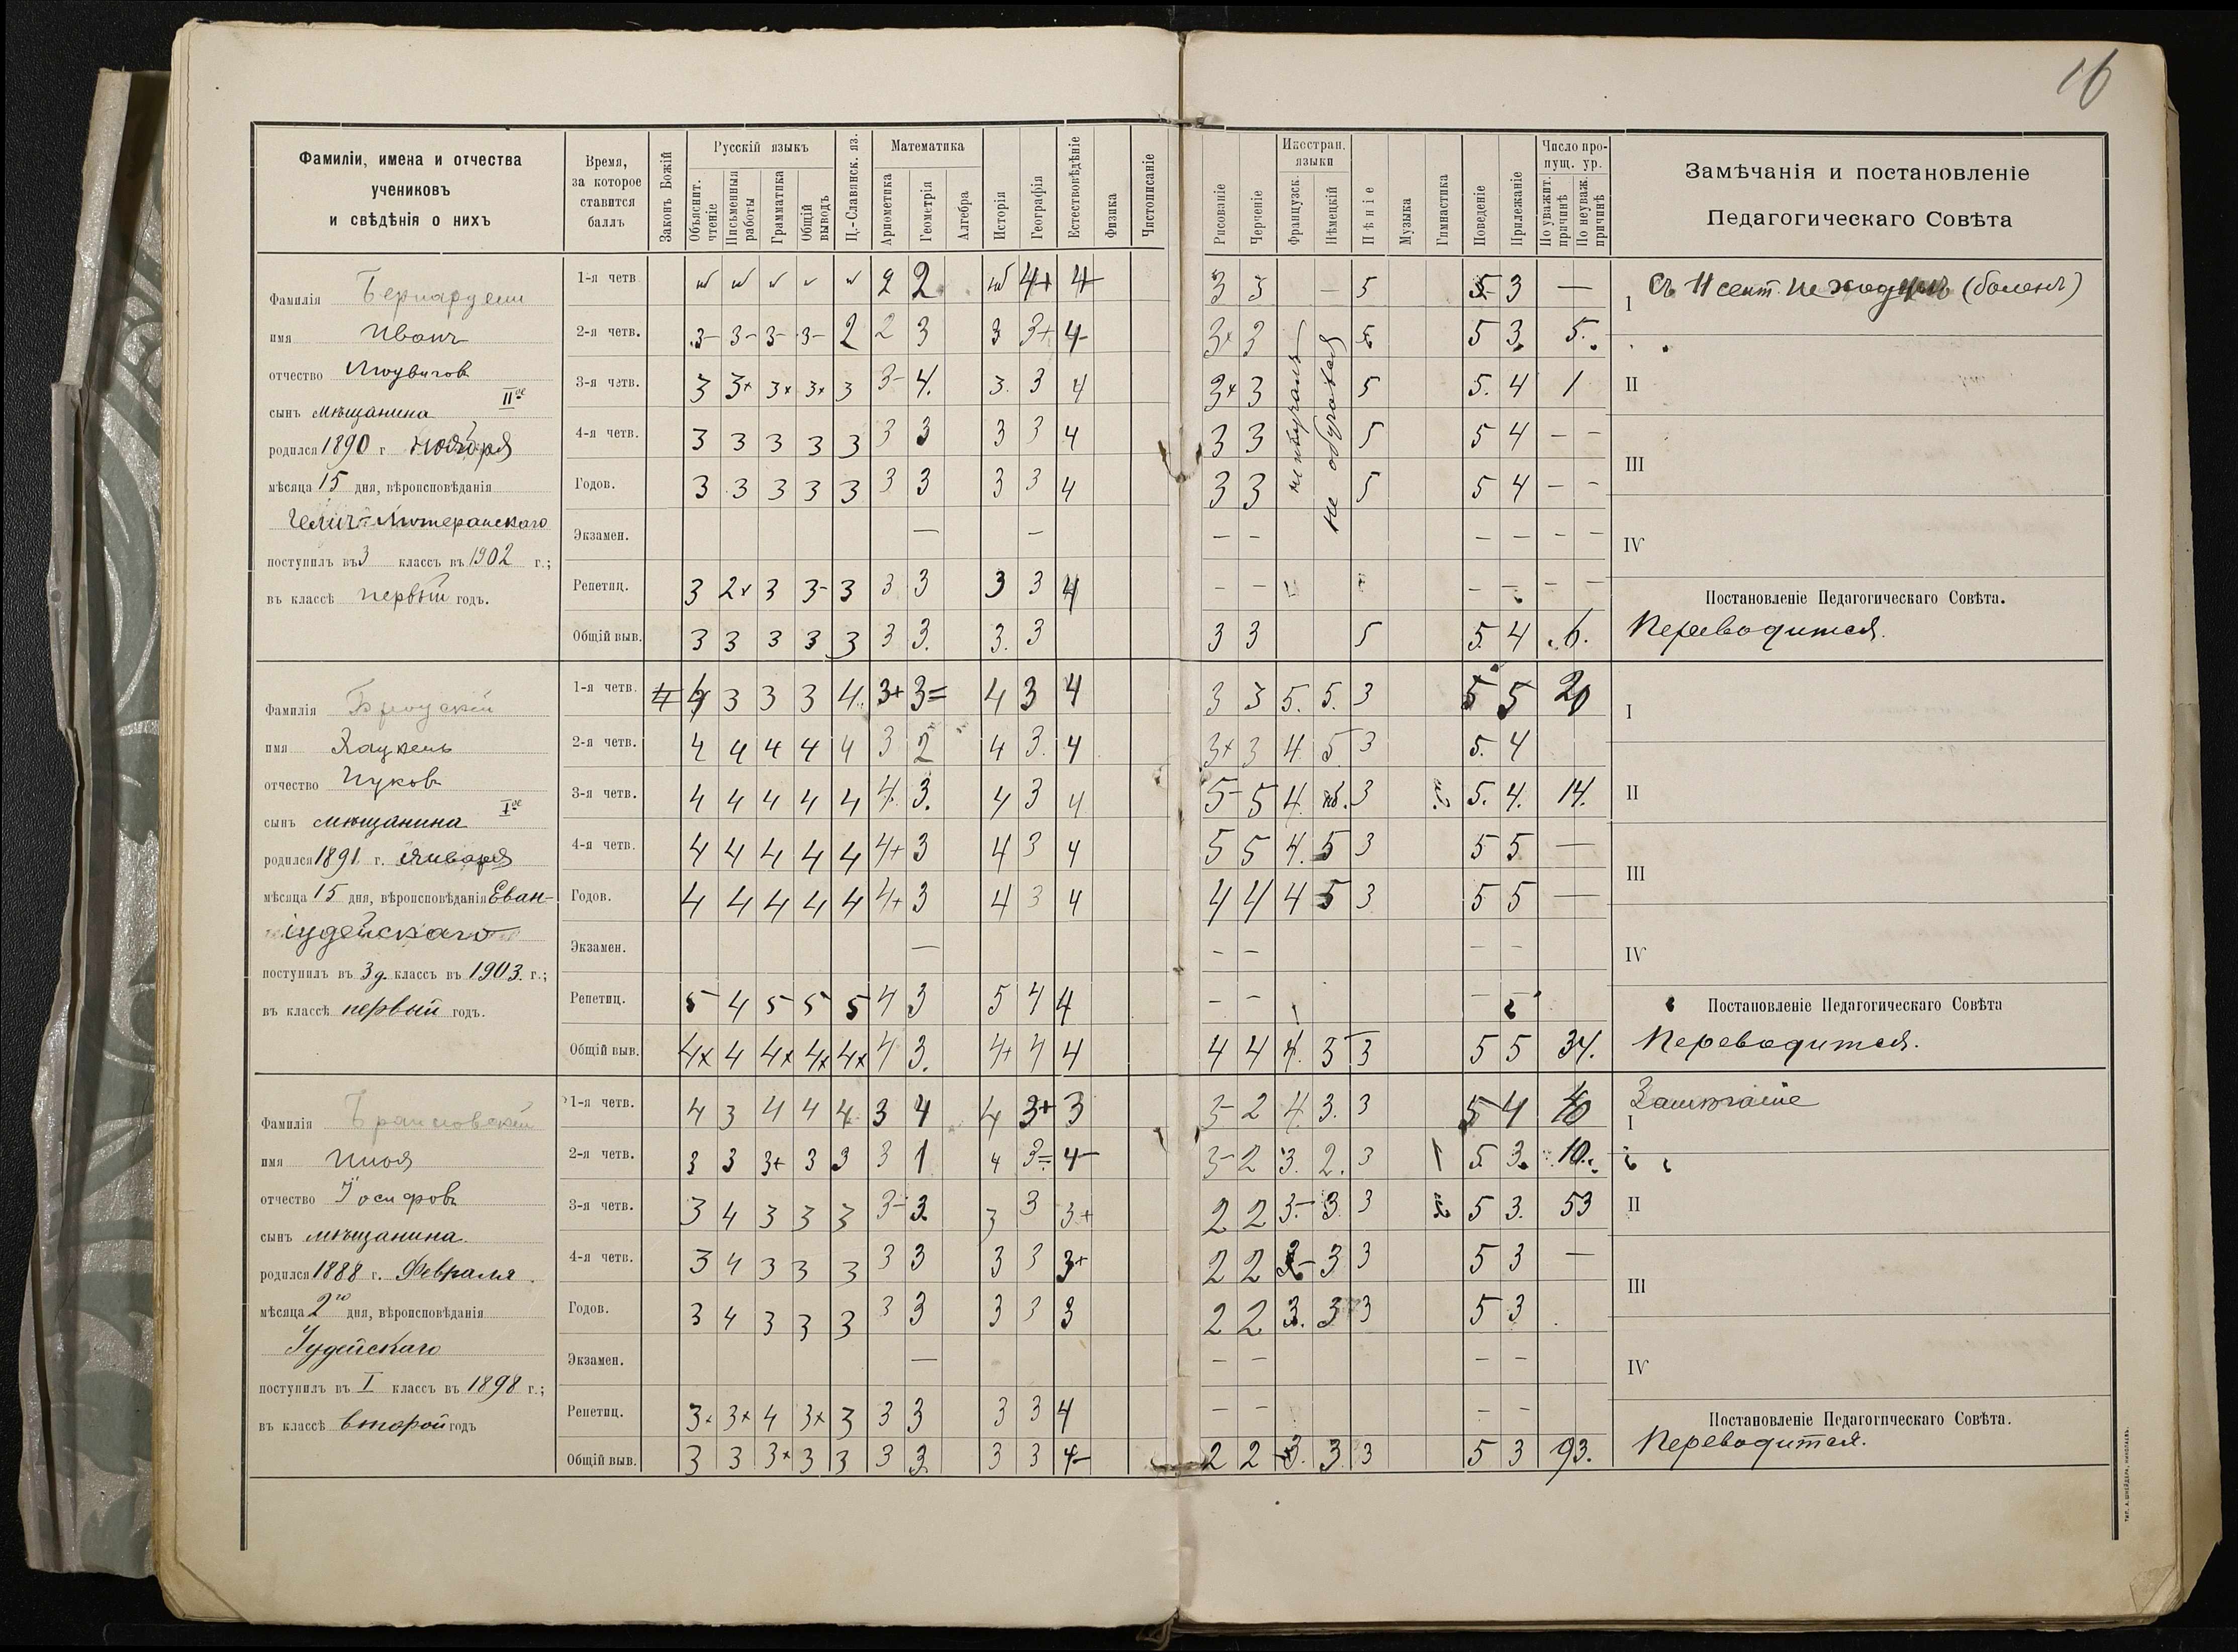 16
Фамиліи, имена и отчества
учениковъ
и свѣдѣнія о нихъ
Время,
за которое
ставится
баллъ
Законъ Божій
Русскій языкъ
Объяснит. чтеніе
Письменныя работы
Грамматика
Общій выводъ
Ц.-Славянск. яз.
Математика
Ариѳметика
Геометрія
Алгебра
Исторія
Географія
Естествовѣдѣніе
Физика
Чистописаніе
Рисованіе
Черченіе
Иностран. языки
Французск.
Нѣмецкій
Пѣніе
Музыка
Гимнастика
Поведеніе
Прилежаніе
Число пропущ. ур.
По уважит. причинѣ
По неуваж. причинѣ
Замѣчанія и постановленіе
Педагогическаго Совѣта
Фамилія Бернардели
имя Иванъ
отчество Людвигов
сынъ мѣщанина IIое
родился 1890 г Ноября
мѣсяца 15 дня, вѣроисповѣданія
-Лютеранскаго
поступилъ въ 3 классъ въ 1902 г.;
въ классѣ первый годъ.
1-я четв. 2 2 нб 4+ 4 3 3 — 5 5 3 —
I Съ 11 сент. не ходилъ (боленъ)
2-я четв. 3- 3- 3- 3- 2 2 3 3 3+ 4- 3+ 3 5 5 3 5.
3-я четв. 3 3+ 3+ 3+ 3 3- 4. 3. 3 4 3+ 3 5 5. 4 1
II
4-я четв. 3 3 3 3 3 3 3 3 3 4 3 3 5 5 4 — —
не обучался
III
Годов. 3 3 3 3 3 3 3 3 3 4 3 3 5 5 4 — —
Экзамен. — — — — — — — —
IV
Репетиц. 3 2+ 3 3- 3 3 3 3 3 4 — — — — — —
Постановленіе Педагогическаго Совѣта.
Общій выв. 3 3 3 3 3 3 3. 3. 3 3 3 5 5. 4 6.
Переводится.
Фамилія Бродскій
имя
отчество Ицковъ
сынъ мѣщанина Iое
родился 1891 г. Января
мѣсяца 15 дня, вѣроисповѣданія Еван-
іудейскаго
поступилъ въ 3д. классъ въ 1903. г.;
въ классѣ первый годъ.
1-я четв. 4 4 3 3 3 4. 3+ 3= 4 3 4 3 3 5. 5. 3 5 5 20
I
2-я четв. 4 4 4 4 4 3 2 4 3. 4 3+ 3 4 5 3 5. 4
3-я четв. 4 4 4 4 4 4. 3. 4 3 4 5- 5 4. нб. 3 5. 4. 14.
II
4-я четв. 4 4 4 4 4 4+ 3 4 3 4 5 5 4. 5 3 5 5 —
III
Годов. 4 4 4 4 4 4+ 3 4 3 4 4 4 4 5 3 5 5 —
Экзамен. — — — — —
IV
Репетиц. 5 4 5 5 5 4 3 5 4 4 — — —
Постановленіе Педагогическаго Совѣта
Общій выв. 4+ 4 4+ 4+ 4+ 4 3. 4+ 4 4 4 4 4. 3 3 5 5 34.
Переводится.
Фамилія
имя Илья
отчество Іосифовъ
сынъ мѣщанина.
родился 1888 г. Февраля.
мѣсяца 2го дня, вѣроисповѣданія
Іудейскаго
поступилъ въ I классъ въ 1898 г.;
въ классѣ второй годъ
1-я четв. 4 3 4 4 4. 3 4 4 3+ 3 3- 2 4. 3. 3 5 4
I
2-я четв. 3 3 3+ 3 3 3 1 4 3= 4- 3- 2 3. 2. 3 1 5. 3. 10.
3-я четв. 3 4 3 3 3 3- 3. 3 3 3+ 2 2 3.- 3. 3 5 3. 53
II
4-я четв. 3 4 3 3 3 3 3 3 3 3+ 2 2 3- 3 3 5 3 —
III
Годов. 3 4 3 3 3 3 3 3 3 3 2 2 3. 3 3 5 3
Экзамен. — — — — —
IV
Репетиц. 3+ 3+ 4 3+ 3 3 3 3 3 4 — — — —
Постановленіе Педагогическаго Совѣта.
Общій выв. 3 3 3+ 3 3 3 3 3 3 4- 2 2 3. 3. 3 5 3 93.
Переводится.
ТИП. А. ШНЕЙДЕРА, НИКОЛАЕВЪ.